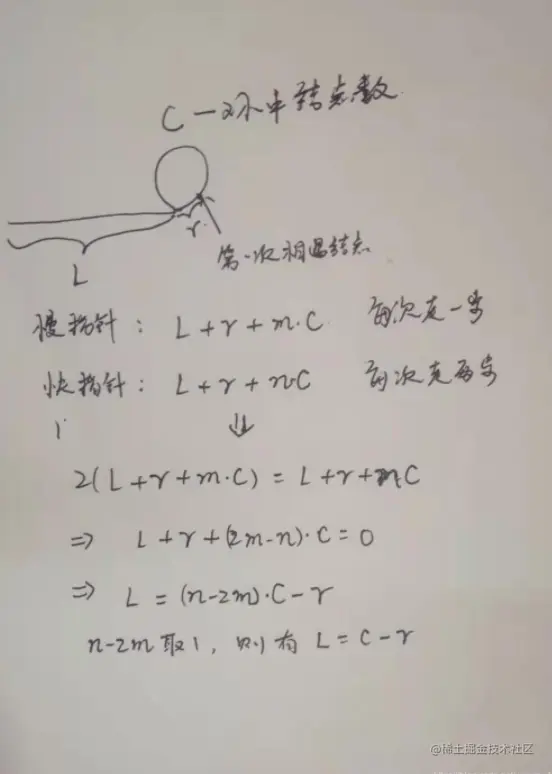 C — 环中结点数
r
L
第一次相遇结点
慢指针: L+r+m·C 每次走一步
快指针: L+r+n·C 每次走两步
⇓
2(L+r+m·C) = L+r+mC
⇒ L+r+(2m-n)·C=0
⇒ L = (n-2m)·C-r
n-2m取1, 则有 L=C-r
@稀土掘金技术社区